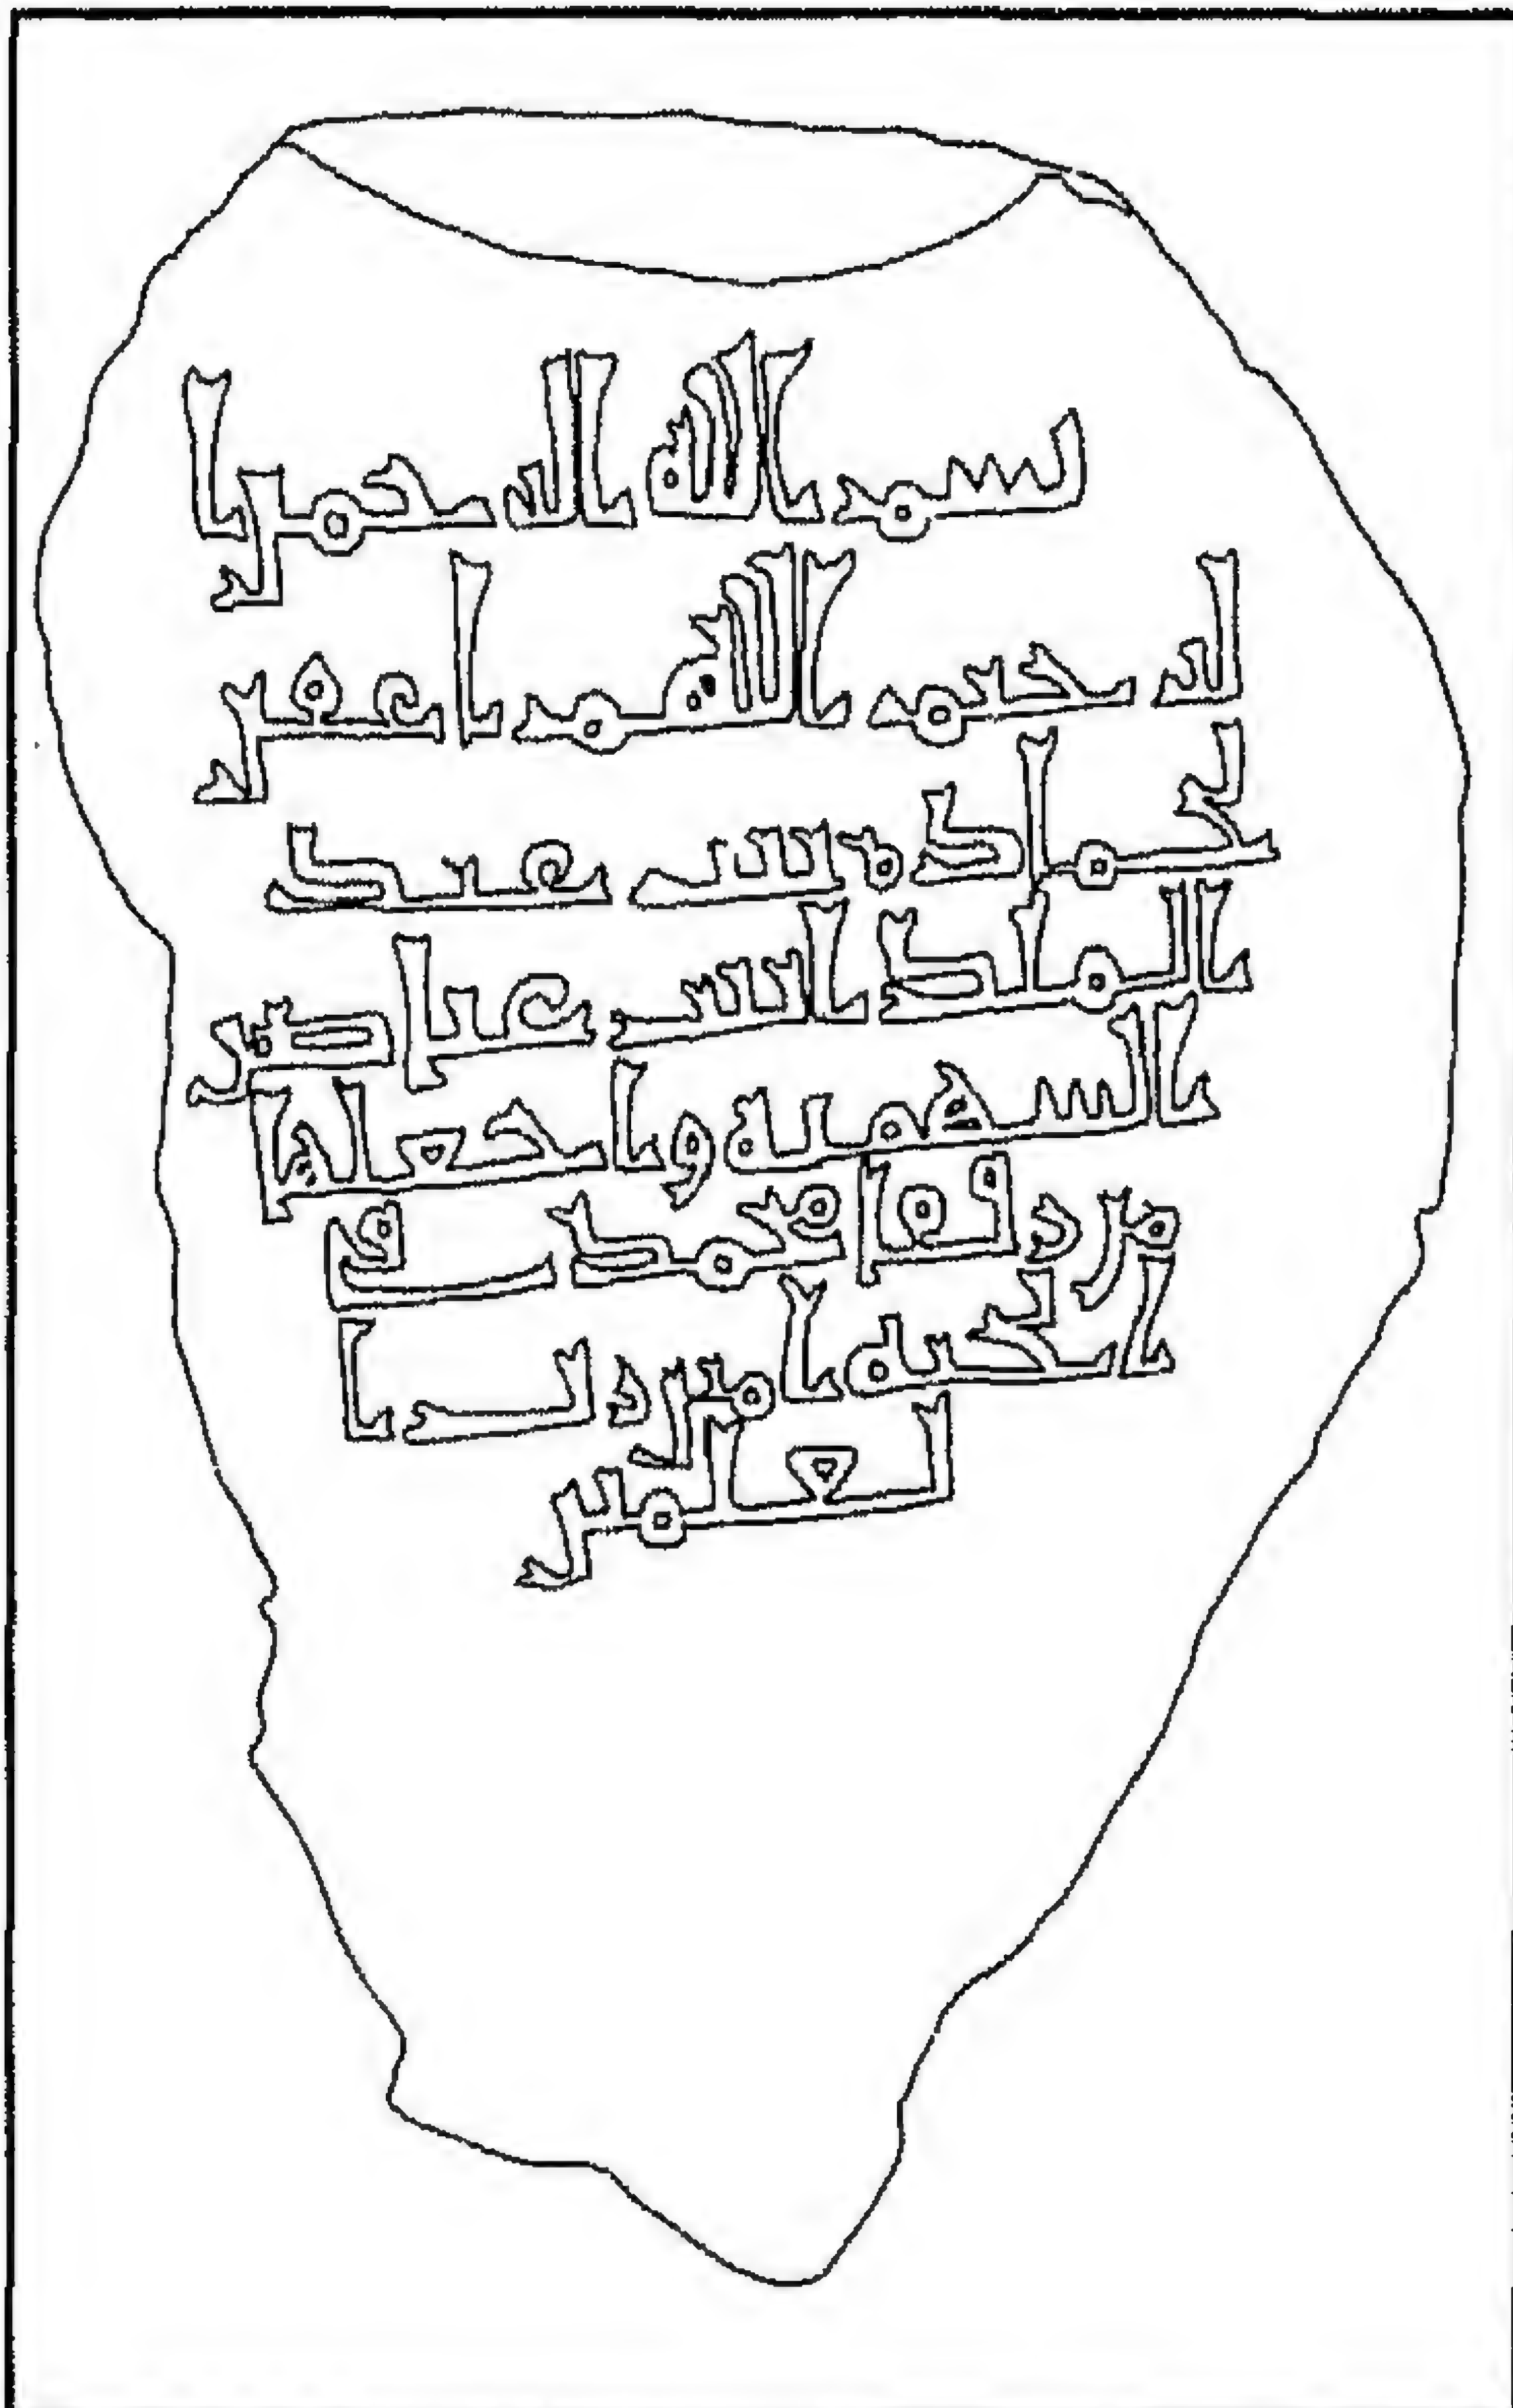 بسم الله الرحمن ا
لرحيم اللهم اغفر
لحمادة بنت عبد
الملك ابنت عياض
السهمية واجعلها
من رفقا محمد في
الجنة امين رب ا
لعلمين